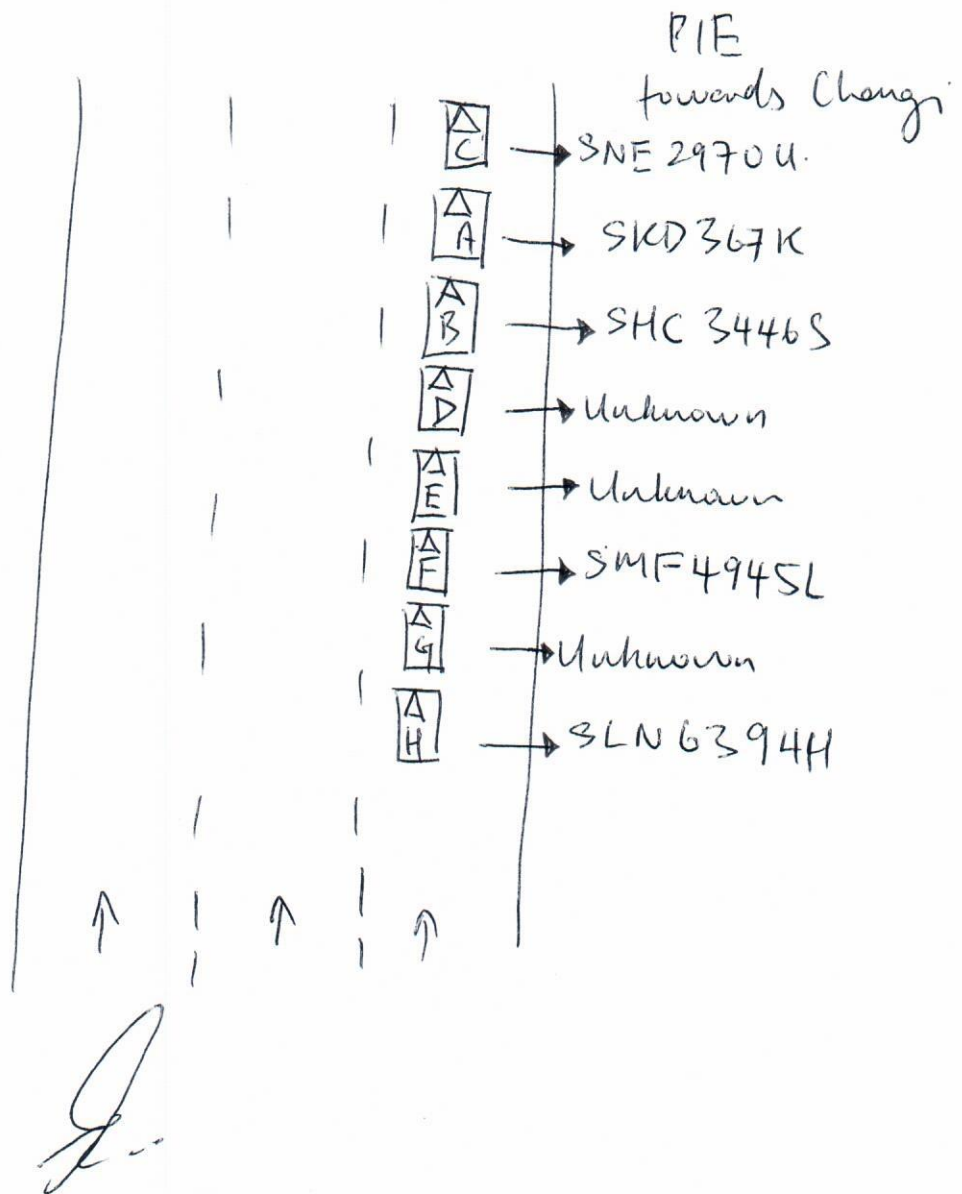 PIE
towards Changi
C → SNE 2970U.
A → SKD 367K
B → SHC 3446S
D → Unknown
E → Unknown
F → SMF4945L
G → Unknown
H → SLN6394H